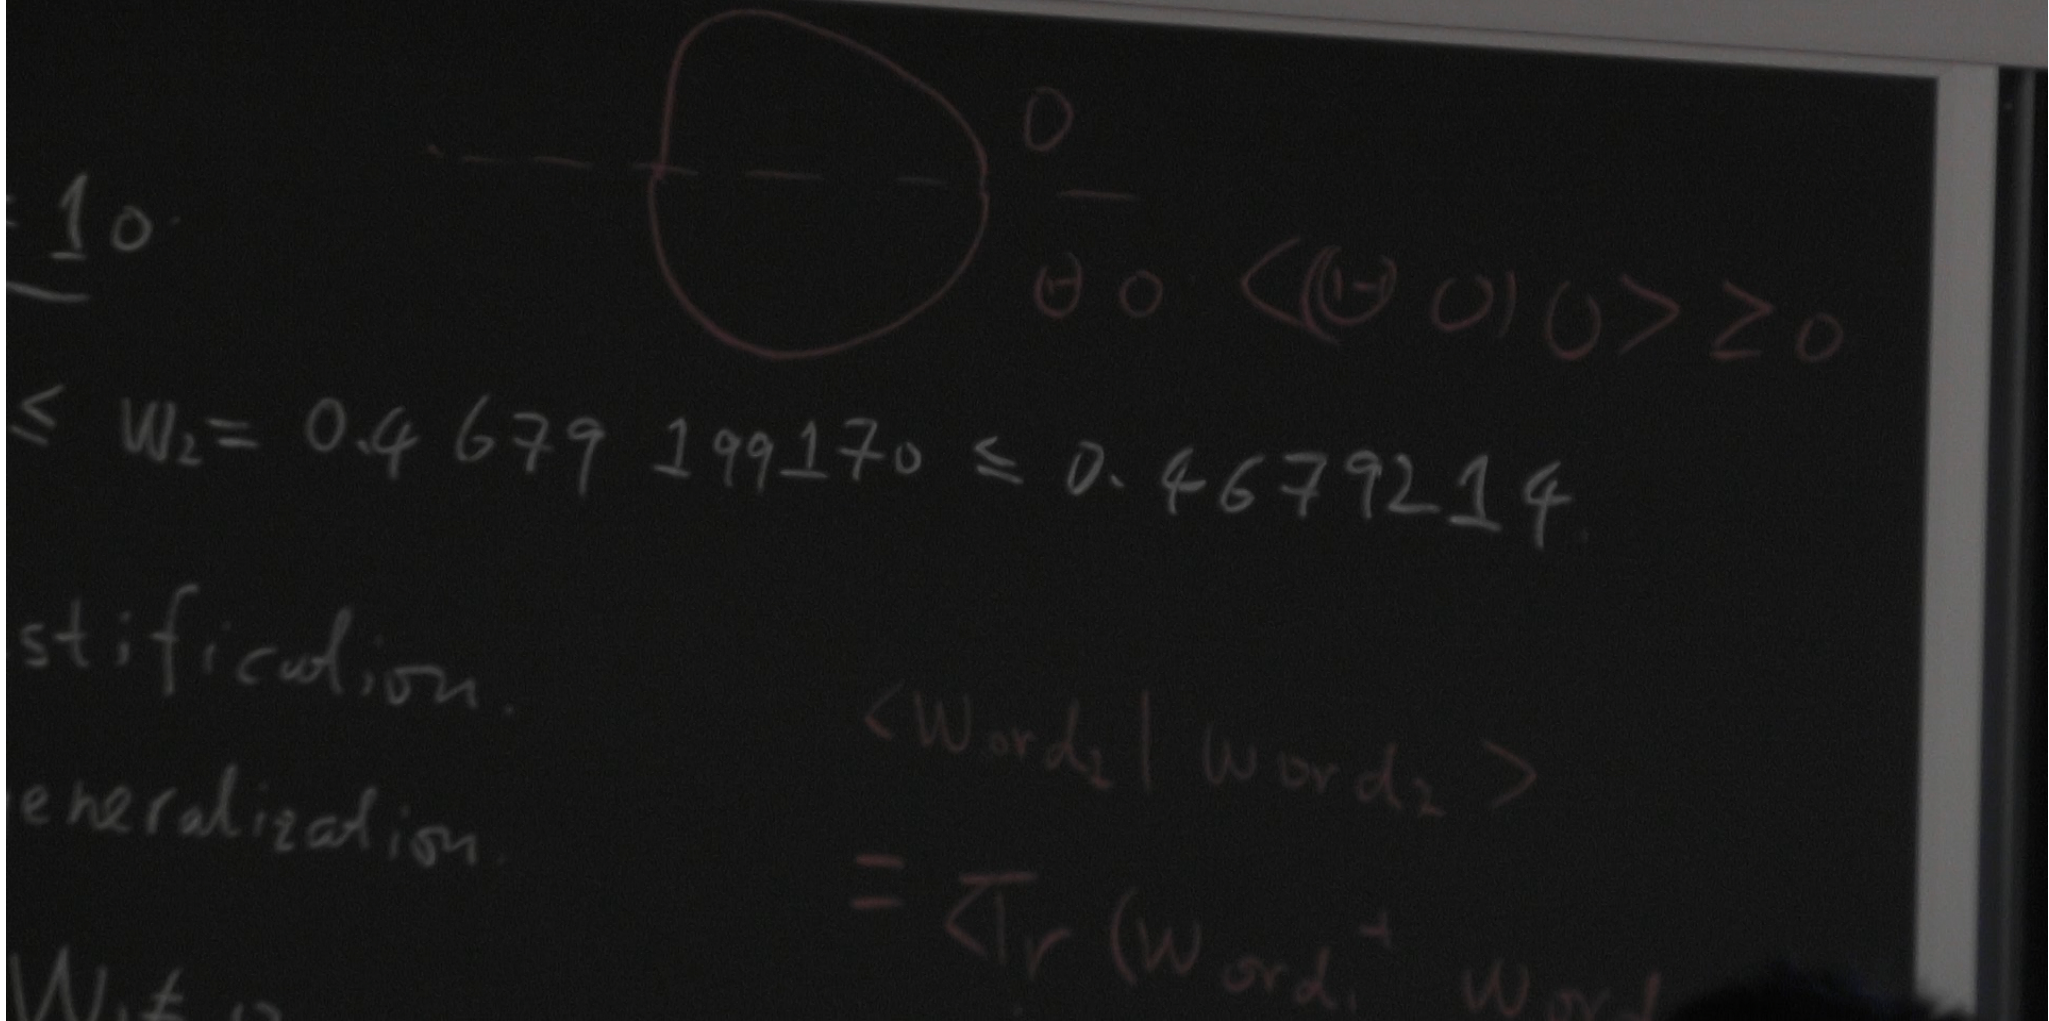 O
= 10
ΘO <(ΘO) O> ≥ 0
≤ W₂ = 0.4679199170 ≤ 0.4679214
stification.
eneralization.
<Word₂ | Word₂>
= <Tr (Word₁†